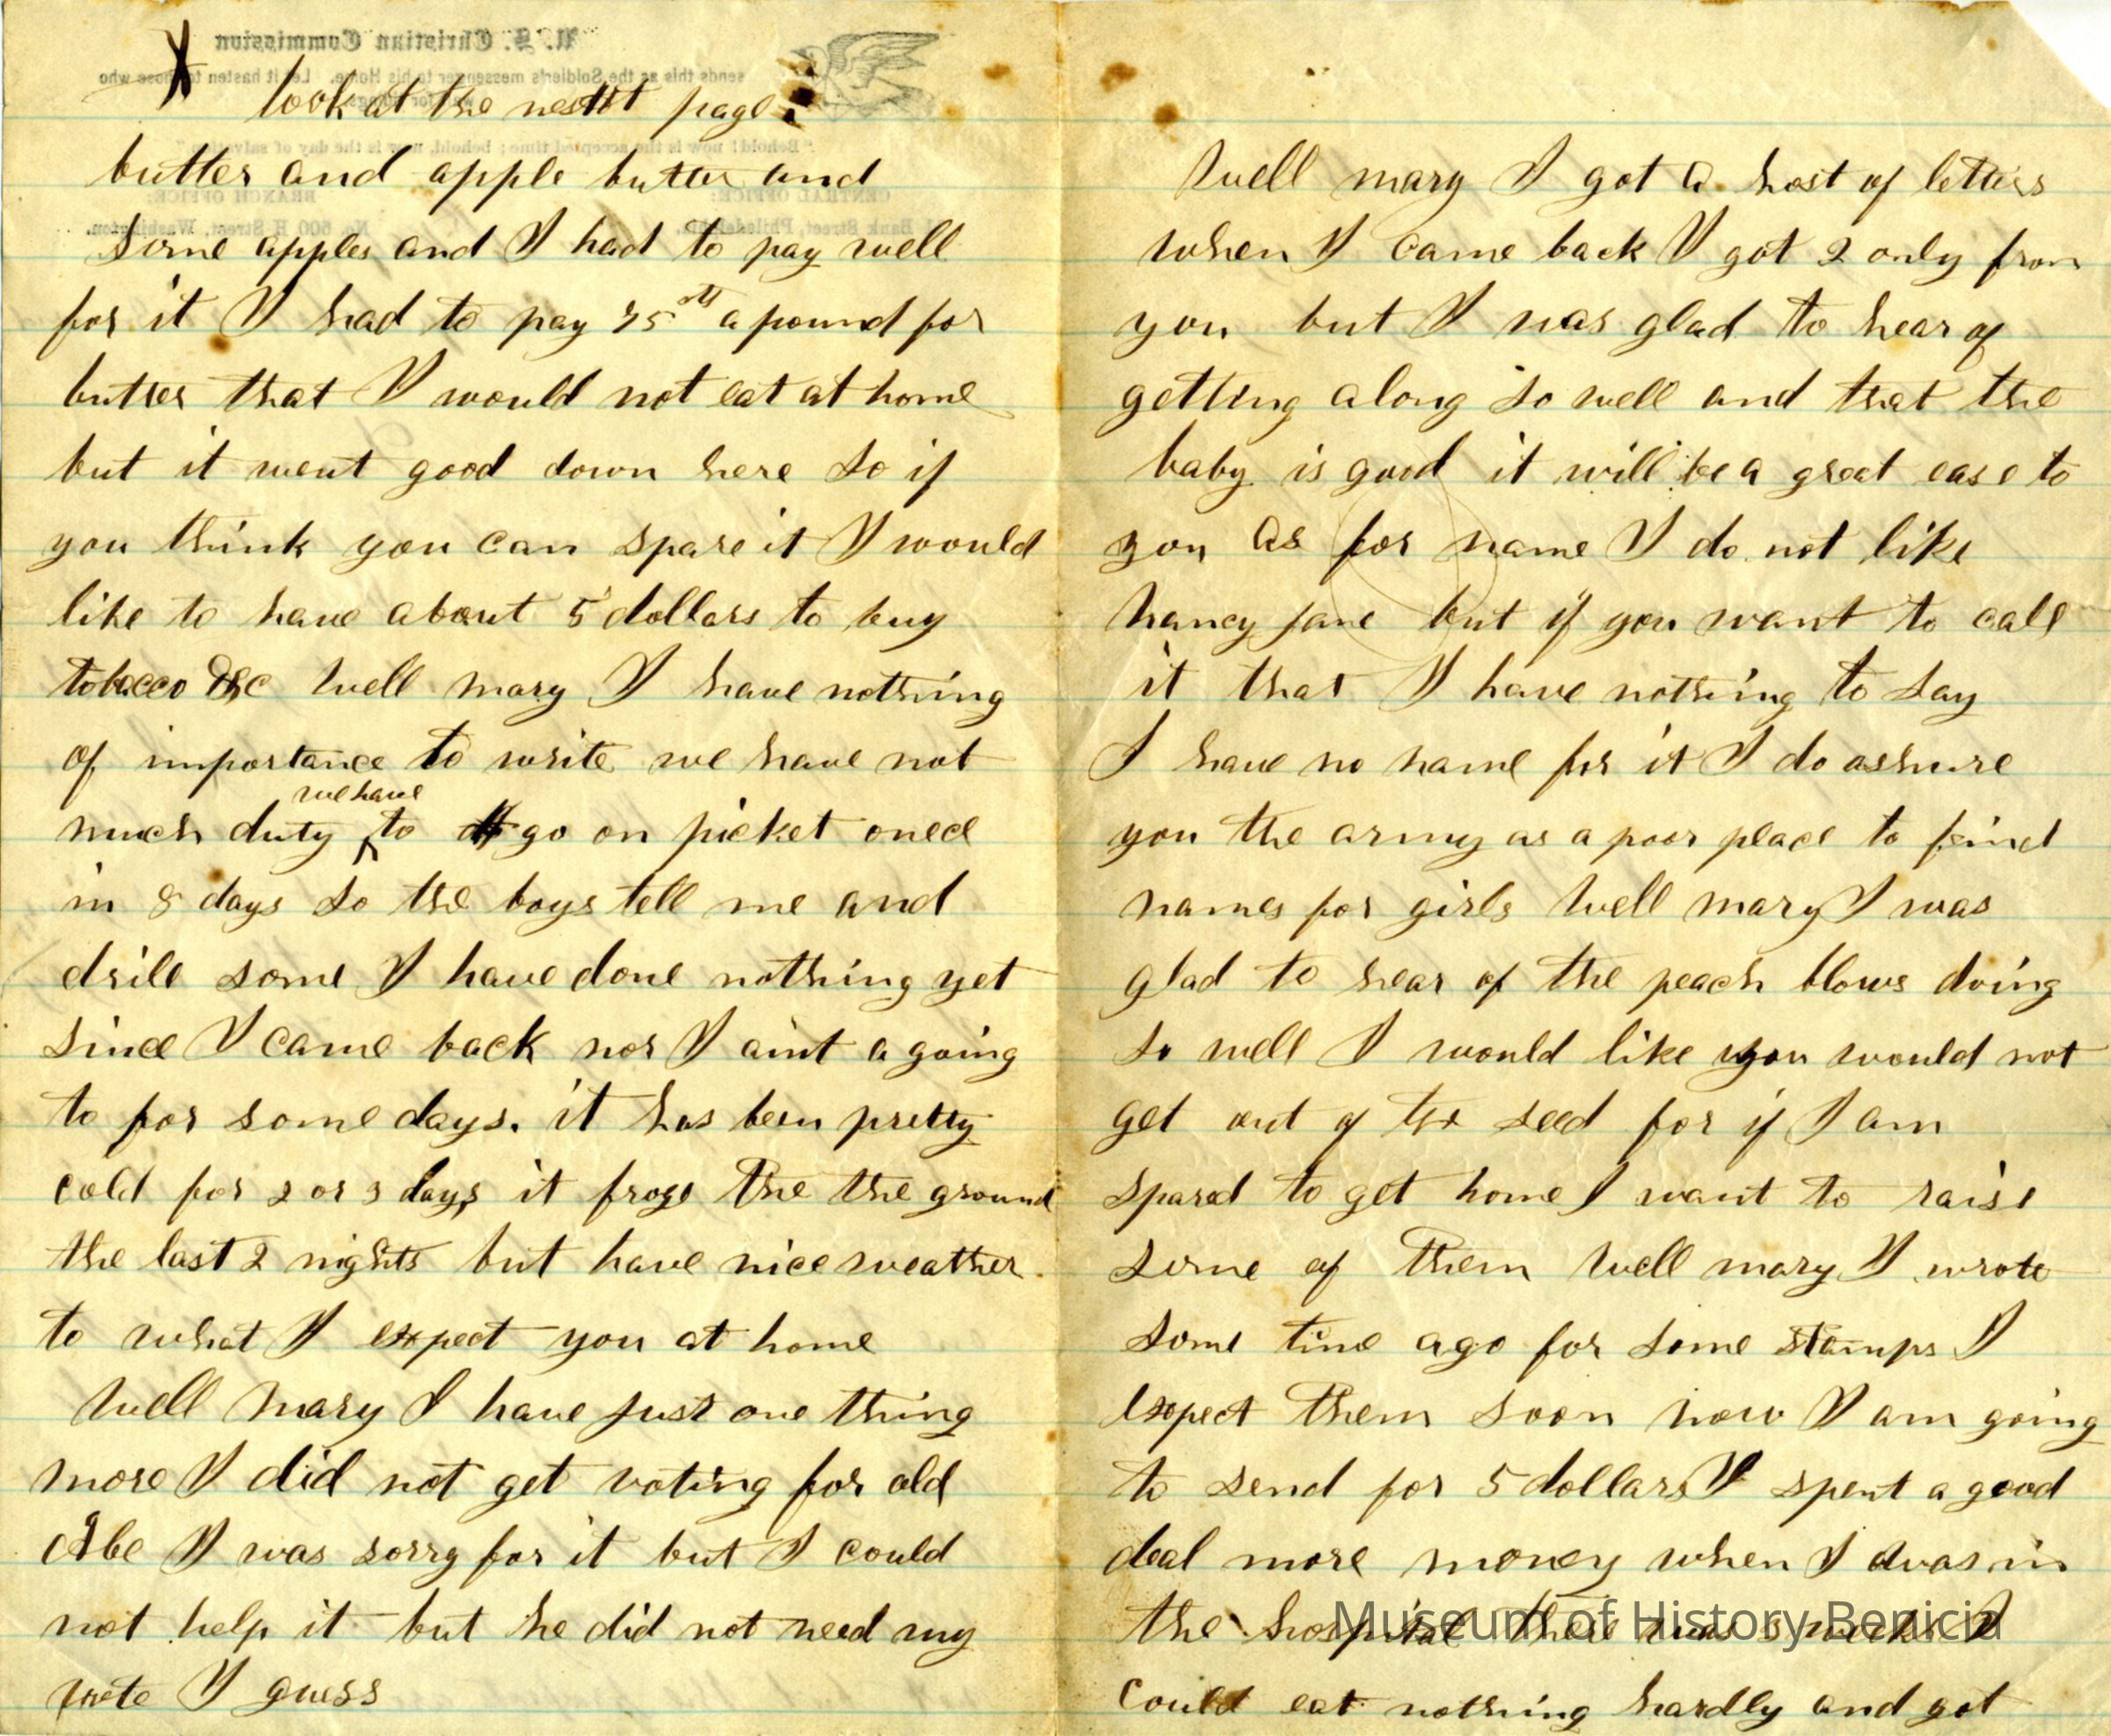 U. S. Christian Commission
sends this as the Soldier's messenger to his Home. Let it hasten to those who
"Behold! now is the accepted time; behold, now is the day of salvation."
CENTRAL OFFICE:
BRANCH OFFICE:
Bank Street, Philadelphia.
No. 500 H Street, Washington.
X look at the page
butter and apple butter and
some apples and I had to pay well
for it I had to pay 75 cts a pound for
butter that I would not eat at home
but it went good down here so if
you think you can spare it I would
like to have about 5 dollars to buy
tobacco &c Well mary I have nothing
of importance to write we have not
we have
much duty to go on picket onec
in 8 days so the boys tell me and
drill some I have done nothing yet
since I came back nor I aint a going
to for some days. it has been pretty
cold for 2 or 3 days it froze the the ground
the last 2 nights but have nice weather
to what I expect you at home
Well Mary I have just one thing
more I did not get voting for old
Abe I was sorry for it but I could
not help it but he did not need my
vote I guess
Well mary I got a host of letters
when I came back I got 2 only from
you but I was glad to hear of
getting along so well and that the
baby is good it will be a great ease to
you as for name I do not like
Nancy Jane but if you want to call
it that I have nothing to say
I have no name for it I do ashure
you the army as a poor place to feind
names for girls Well mary I was
glad to hear of the peach blows doing
so well I would like you would not
get out of the seed for if I am
spared to get home I want to raise
some of them Well mary I wrote
some time ago for some stamps I
expect them soon now I am going
to send for 5 dollars I spent a good
deal more money when I was in
the hospital there was 3 weeks I
could eat nothing hardly and got
Museum of History Benicia